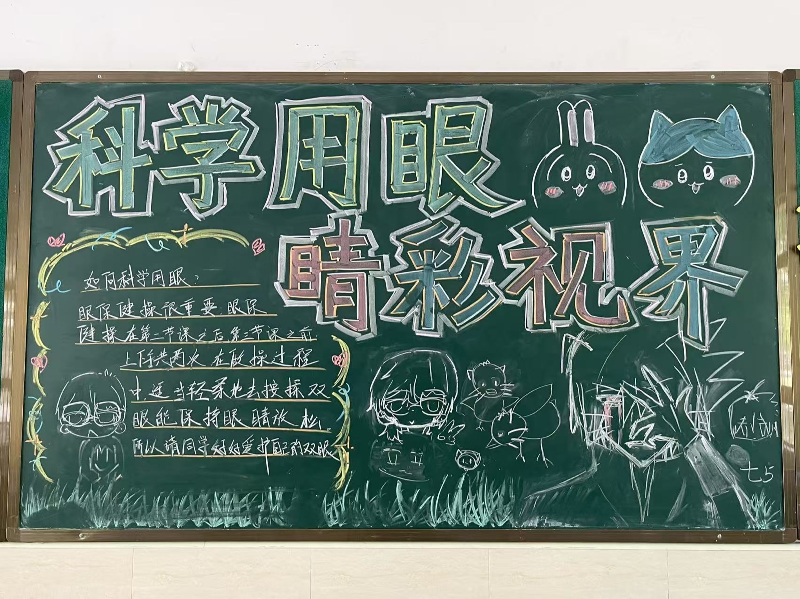 科学用眼
睛彩视界
如何科学用眼？
眼保健操很重要，眼保
健操在第二节课之后第三节课之前
上下午共两次，在做操过程
中适当轻柔地去按揉双
眼能保持眼睛放松
所以请同学好好爱护自己的双眼
七5